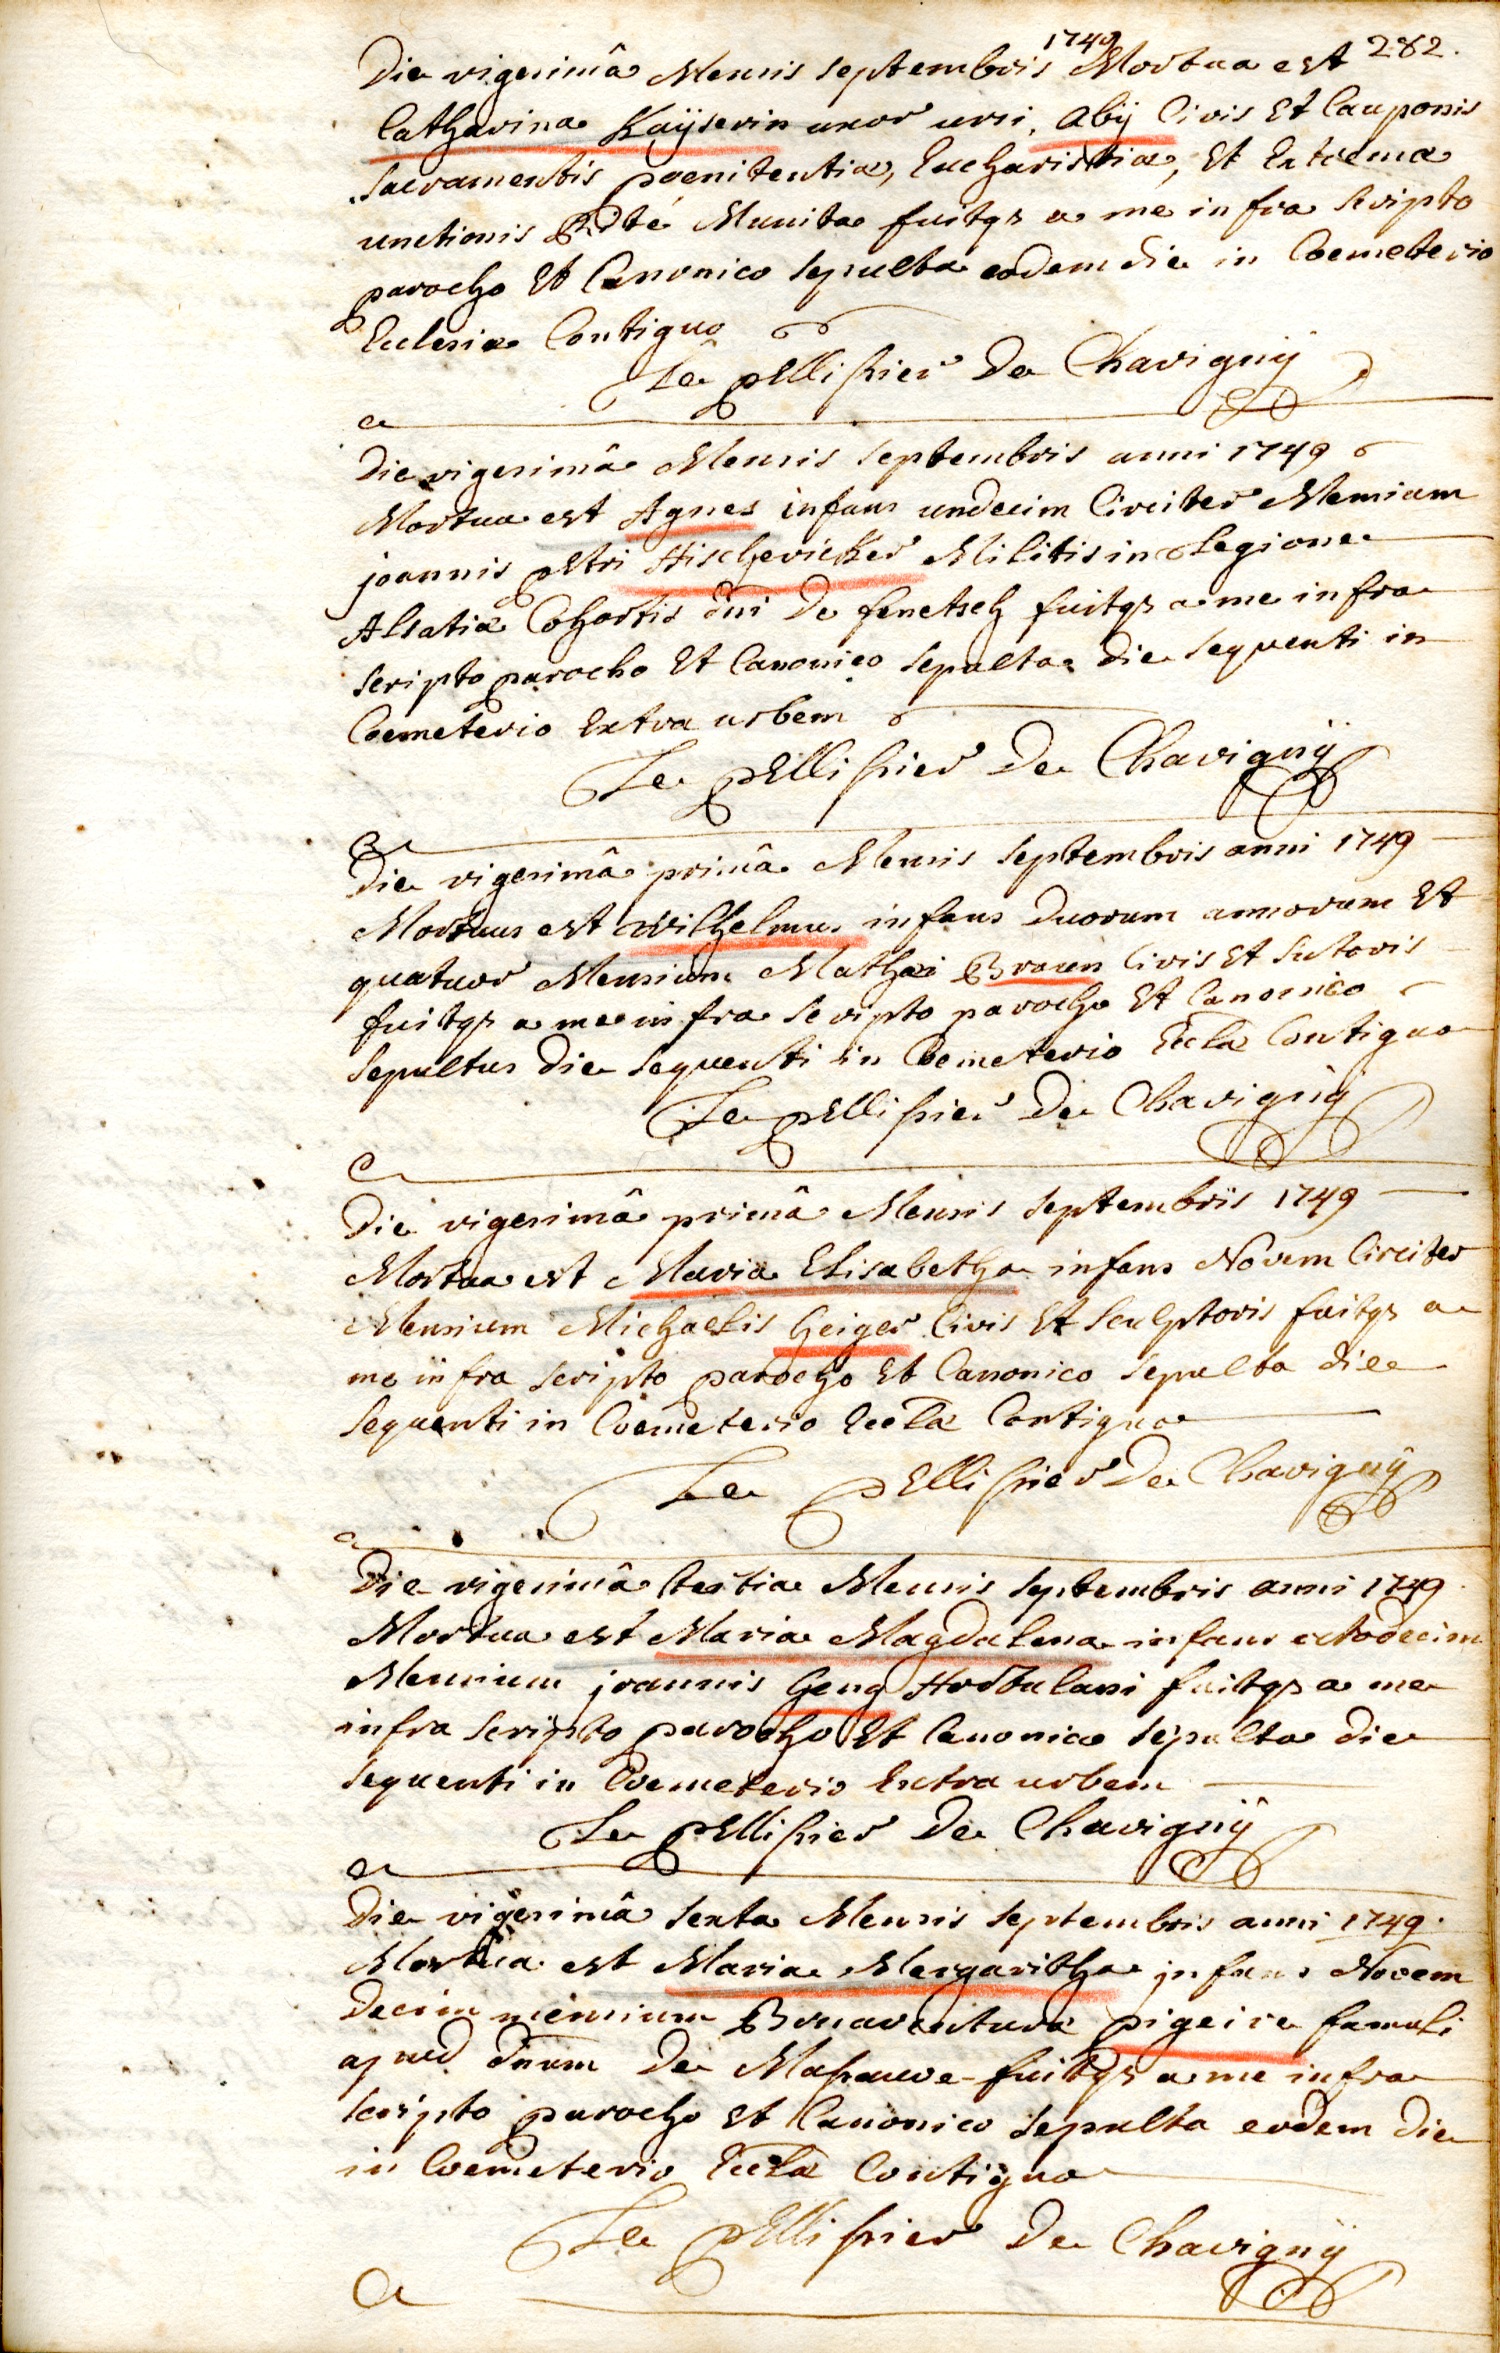 282.
Die vigesimâ Mensis septembris 1749 Mortua est
Catharina Kaÿserin uxor ursi Abÿ Civis Et Cauponis
sacramentis poenitentiæ, Eucharistiæ, Et Extremæ
unctionis Rité Munita fuitqs a me infra scripto
parocho Et Canonico sepulta eodem die in Coemeterio
Ecclesiæ Contiguo
Le pEllissier De Chavignÿ
Die vigesimâ Mensis septembris anni 1749
Mortua est Agnes infans undecim Circiter Mensium
joannis pEtri Militis in Legione
Alsatiæ Cohortis dni De fenetsch fuitqs a me infra
scripto parocho Et Canonico sepulta die sequenti in
Coemeterio Extra urbem
Le pEllissier De Chavignÿ
Die vigesimâ primâ Mensis septembris anni 1749
Mortuus est Wilhelmus infans Duorum annorum Et
quatuor Mensium Mathæi Braun Civis Et sutoris
fuitqs a me infra scripto parocho Et Canonico
sepultus Die sequenti in Coemeterio Eclæ Contiguo
Le pEllissier De Chavignÿ
Die vigesimâ primâ Mensis septembris 1749
Mortua est Maria Elisabetha infans Novem Circiter
Mensium Michaelis Geiger Civis Et sculptoris fuitqs a
me infra scripto parocho Et Canonico sepulta die
sequenti in Coemeterio Eclæ Contiguo
Le pEllissier De Chavignÿ
Die vigesimâ tertia Mensis septembris anni 1749.
Mortua est Maria Magdalena infans octodecim
Mensium joannis Geng Hortulani fuitqs a me
infra scripto parocho Et Canonico sepulta die
sequenti in Coemeterio Extra urbem
Le pEllissier De Chavignÿ
Die vigesimâ sexta Mensis septembris anni 1749.
Mortua est Maria Margaritha infans Novem
Decim mensium Bonaventura pigeire famuli
apud dnum De fuitqs a me infra
scripto parocho Et Canonico sepulta eodem Die
in Coemeterio Eclæ Contiguo
Le pEllissier De Chavignÿ